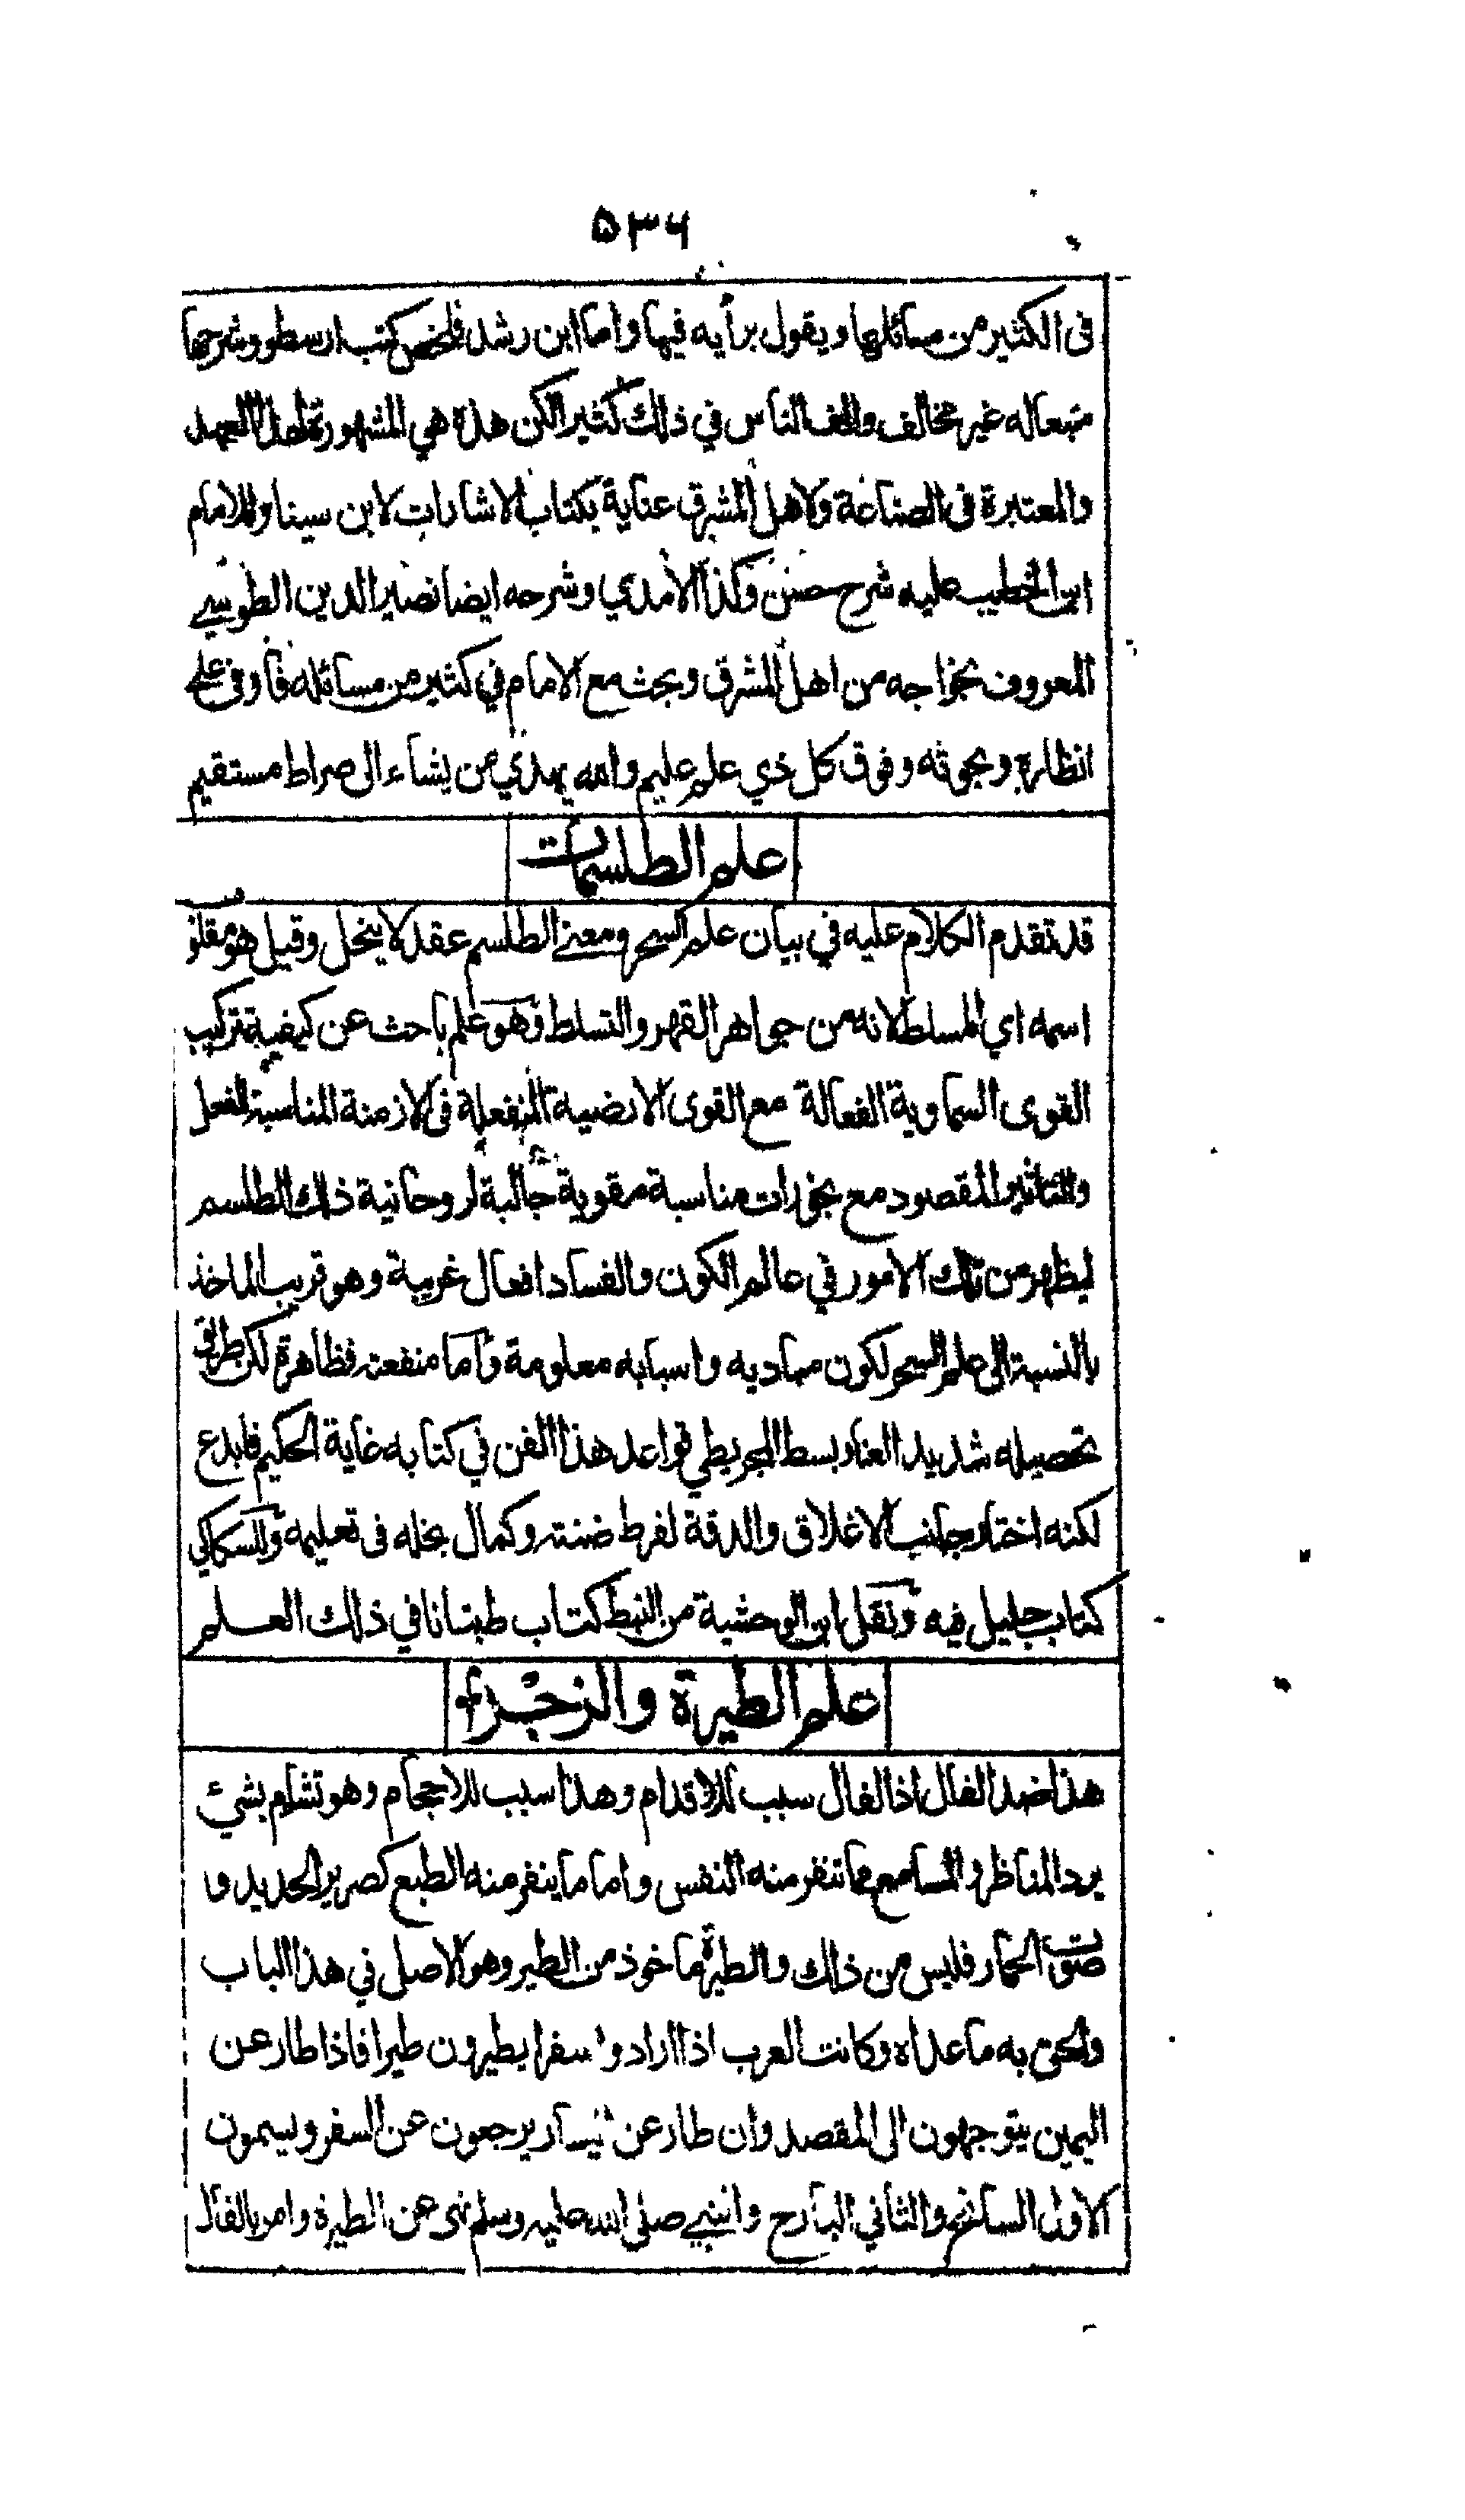 ۵۳۶
فى الكثير من مسائلها ويقول برأيه فيها واما ابن رشد فلخص كتب ارسطو وشرحها
متبعا له غير مخالف والف الناس في ذلك كثيرا لكن هذه هي المشهورة لهذا العهد
والمعتبرة فى الصناعة ولاهل المشرق عناية بكتاب الاشارات لابن سينا وللامام
ابن الخطيب عليه شرح حسن وكذا الآمدي وشرحه ايضا نصير الدين الطوسي
المعروف بخواجه من اهل المشرق وبحث مع الامام في كثير من مسائله فاوفى على
انظاره وبحوثه وفوق كل ذي علم عليم والله يهدي من يشاء الى صراط مستقيم
علم الطلسمات
قد تقدم الكلام عليه في بيان علم السحر ومعنى الطلسم عقد لا ينحل وقيل هو مقلوب
اسمه اي المسلط لانه من جواهر القهر والتسلط وهو علم باحث عن كيفية تركيب
القوى السماوية الفعالة مع القوى الارضية المنفعلة فى الازمنة المناسبة للفعل
والتاثير المقصود مع بخورات مناسبة مقوية جالبة لروحانية ذلك الطلسم
ليظهر من تلك الامور في عالم الكون والفساد افعال غريبة وهو قريب الماخذ
بالنسبة الى علم السحر لكون مباديه واسبابه معلومة واما منفعته فظاهرة لكن طرق
تحصيله شديد العنا وبسط المجريطي قواعد هذا الفن في كتابه غاية الحكيم فابدع
لكنه اختار جانب الاغلاق والدقة لفرط ضنته وكمال بخله فى تعليمه وللسكاكي
كتاب جليل فيه ونقل ابن الوحشية من النبط كتاب طبتانا في ذلك العلم
علم الطيرة والزجر
هذا ضد الفال اذ الفال سبب للاقدام وهذا سبب للاحجام وهو تشام بشيء
يرد المناظر والمسامع مما تنفر منه النفس واما ما ينفر منه الطبع كصرير الحديد و
صوت الحمار فليس من ذلك والطيرة ماخوذ من الطير وهو الاصل في هذا الباب
والحق به ما عداه وكانت العرب اذا ارادوا سفرا يطيرون طيرا فاذا طار عن
اليمين يتوجهون الى المقصد وان طار عن يسار يرجعون عن السفر ويسمون
الاول السانح والثاني البارح والنبي صلى الله عليه وسلم نهى عن الطيرة وامر بالفال